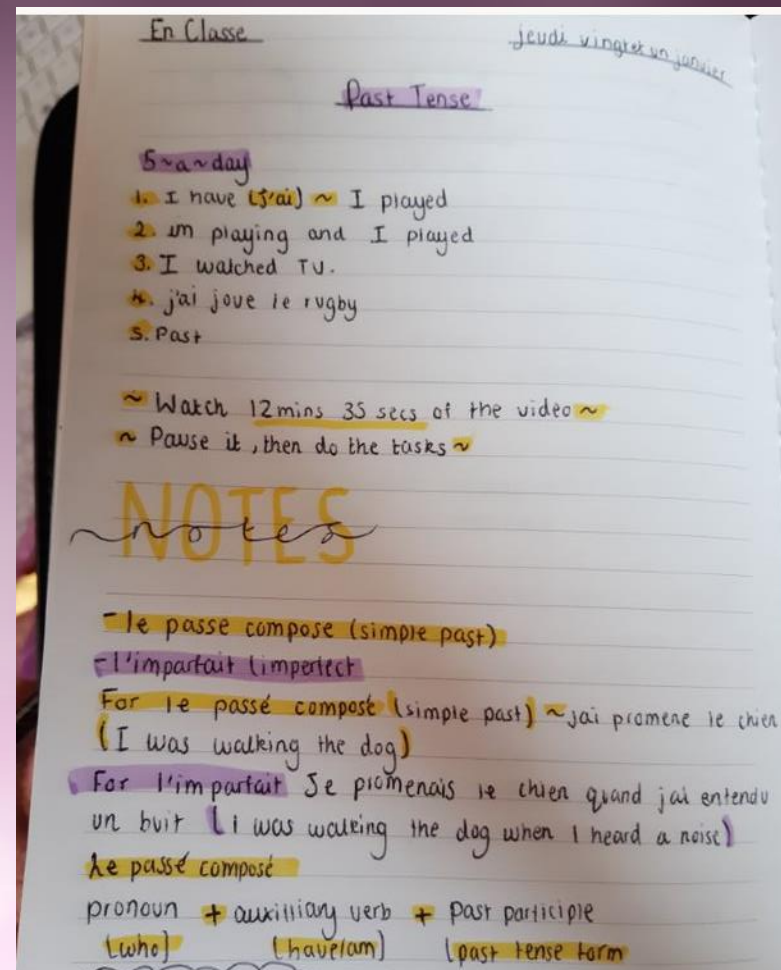 En Classe
jeudi vingt et un janvier
Past Tense
5~a~day
1. I have (j'ai) ~ I played
2. im playing and I played
3. I watched TV.
4. j'ai joue le rugby
5. Past
~ Watch 12mins 35 secs of the video ~
~ Pause it, then do the tasks ~
NOTES
notes
-le passe compose (simple past)
-l'imparfait (imperfect
For le passé composé (simple past) ~ jai promene le chien
(I was walking the dog)
For l'imparfait Je promenais le chien quand jai entendu
un buit (i was walking the dog when I heard a noise)
Le passé composé
pronoun + auxilliary verb + past participle
(who) (have/am) (past tense form